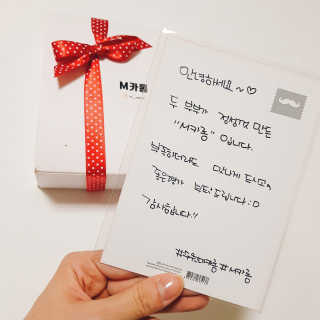 M카롱
안녕하세요~♡
두 부부가 정성껏 만든
"M카롱" 입니다.
부족하더라도 맛나게 드시고,
좋은평가 부탁드립니다 :D
감사합니다!!
#수원마카롱 #M카롱